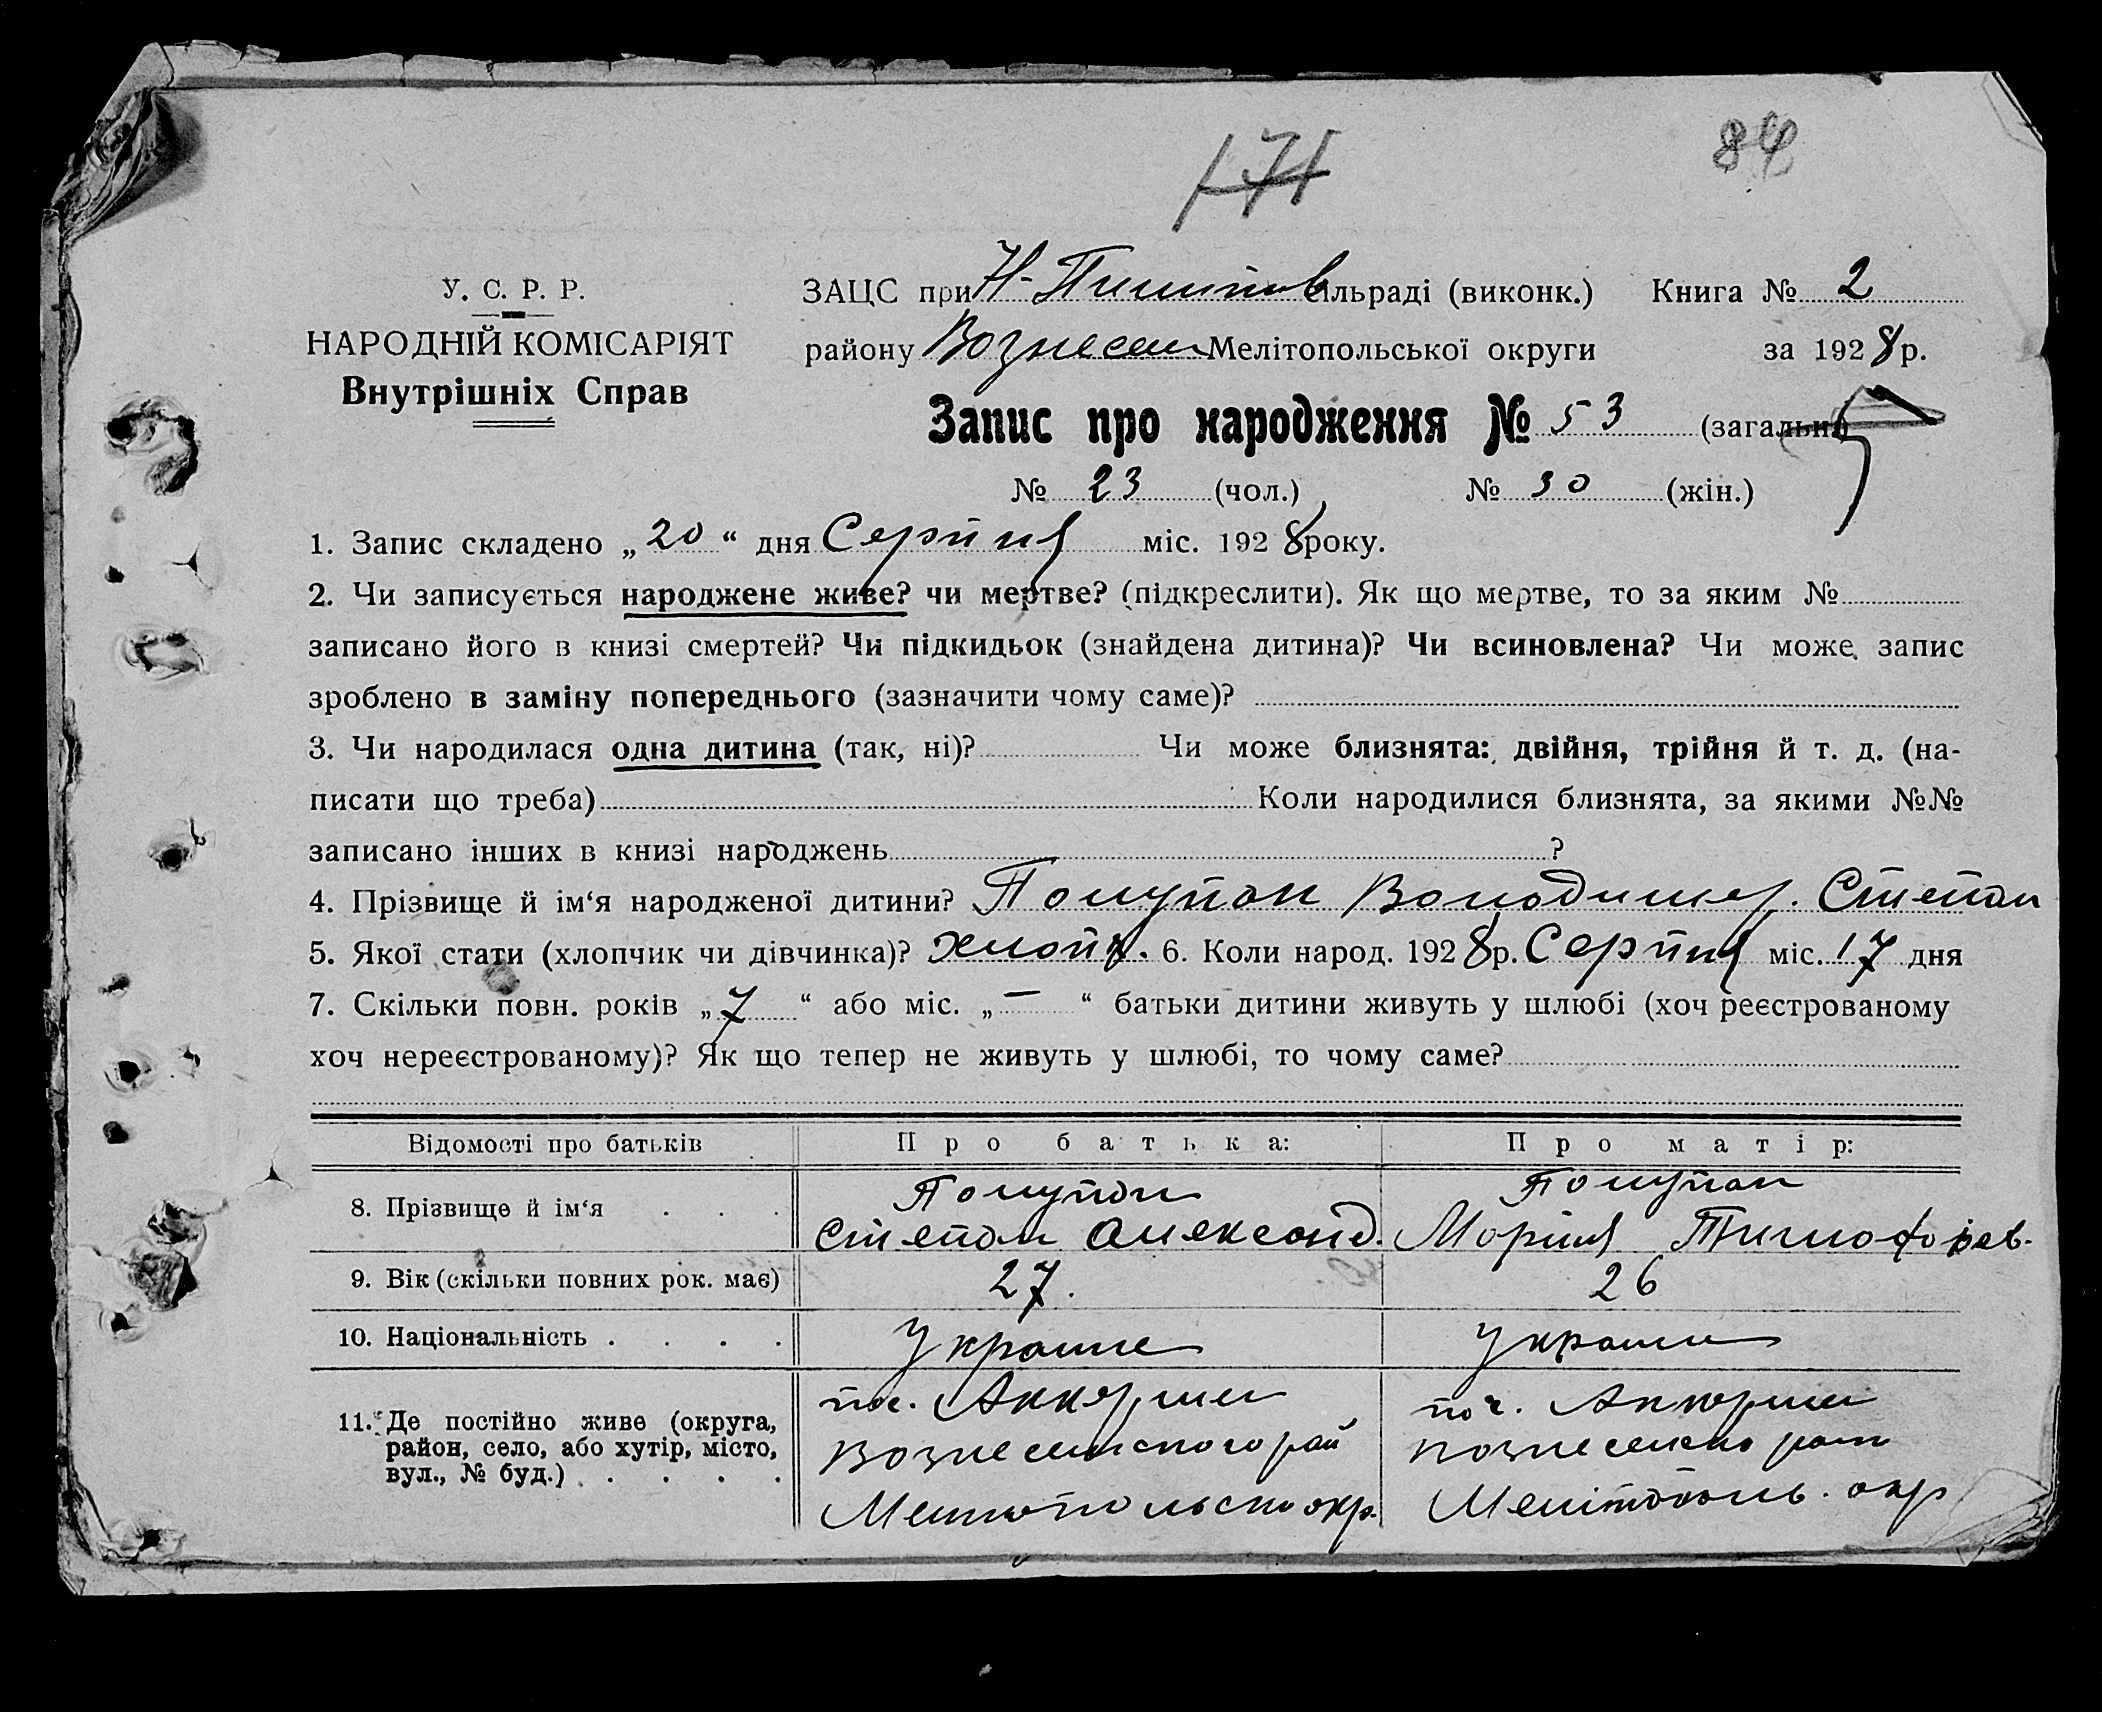 171
84
У. С. Р. Р.
НАРОДНІЙ КОМІСАРІЯТ
Внутрішніх Справ
ЗАЦС при Н- Пилипов сільраді (виконк.) Книга № 2
району Вознесен Мелітопольської округи за 1928 р.
Запис про народження № 53 (загальн.)
№ 23 (чол.) № 30 (жін.)
1. Запис складено „20“ дня Серпня міс. 1928 року.
2. Чи записується народжене живе? чи мертве? (підкреслити). Як що мертве, то за яким №
записано його в книзі смертей? Чи підкидьок (знайдена дитина)? Чи всиновлена? Чи може запис
зроблено в заміну попереднього (зазначити чому саме)?
3. Чи народилася одна дитина (так, ні)? Чи може близнята: двійня, трійня й т. д. (на-
писати що треба) Коли народилися близнята, за якими №№
записано інших в книзі народжень ?
4. Прізвище й ім‘я народженої дитини? Полупан Володимер. Степан
5. Якої стати (хлопчик чи дівчинка)? хлопч. 6. Коли народ. 1928 р. Серпня міс. 17 дня
7. Скільки повн. років „7“ або міс. „—“ батьки дитини живуть у шлюбі (хоч реєстрованому
хоч нереєстрованому)? Як що тепер не живуть у шлюбі, то чому саме?
Відомості про батьків Про батька: Про матір:
8. Прізвище й ім‘я Полупан Полупан
Степан Александ. Марія Тимофеев.
9. Вік (скільки повних рок. має) 27. 26
10. Національність Украине Украин
11. Де постійно живе (округа, район, село, або хутір, місто, вул., № буд.)
пос. Аккермен
Вознесенского рай
Мелитопольск окр.
Аккермен
Вознесенско раин
Мелітополь. окр